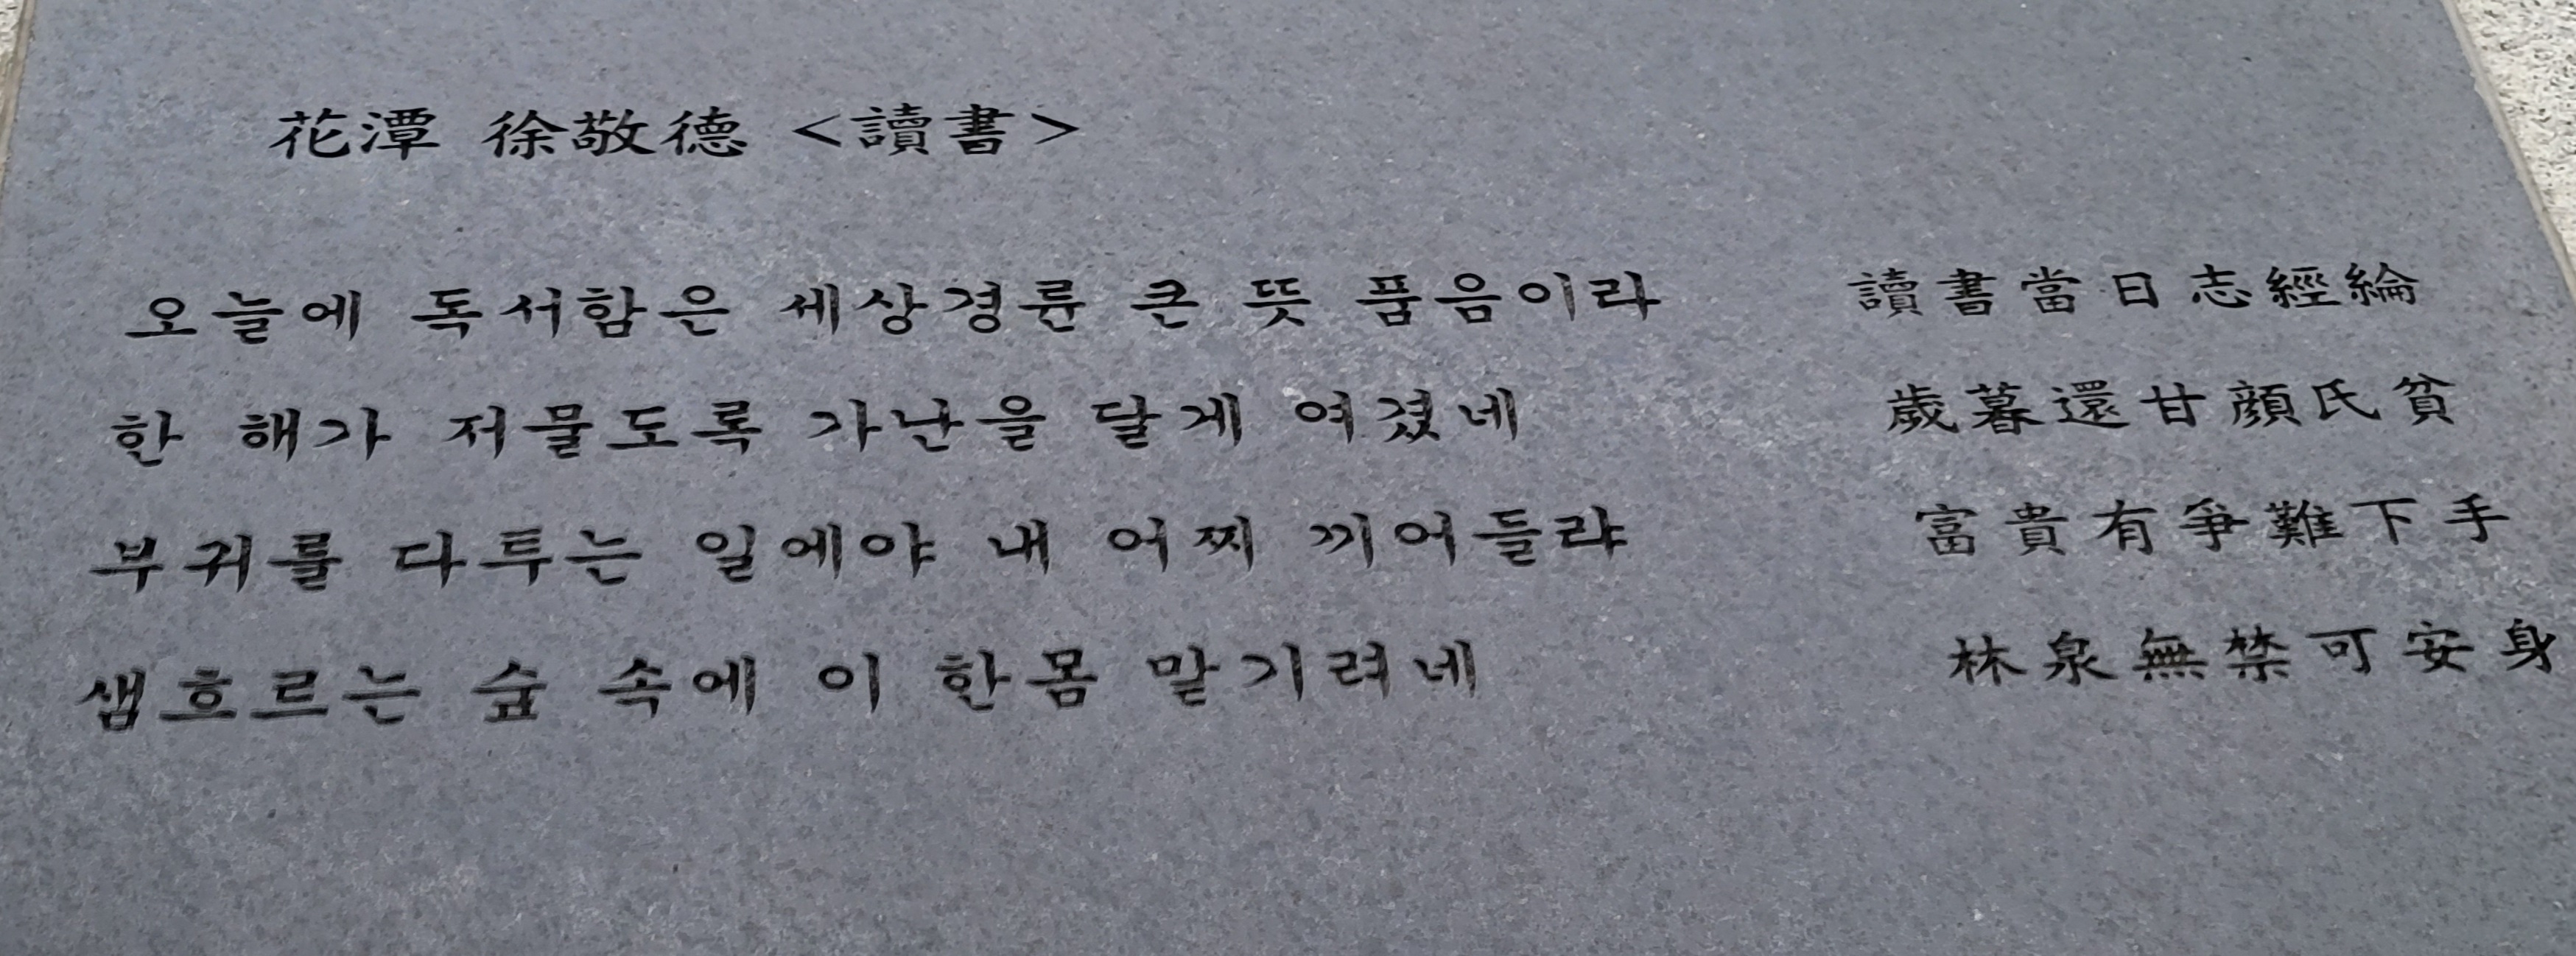 花潭 徐敬德 <讀書>
오늘에 독서함은 세상경륜 큰 뜻 품음이라 讀書當日志經綸
한 해가 저물도록 가난을 달게 여겼네 歲暮還甘顔氏貧
부귀를 다투는 일에야 내 어찌 끼어들랴 富貴有爭難下手
샘흐르는 숲 속에 이 한몸 맡기려네 林泉無禁可安身